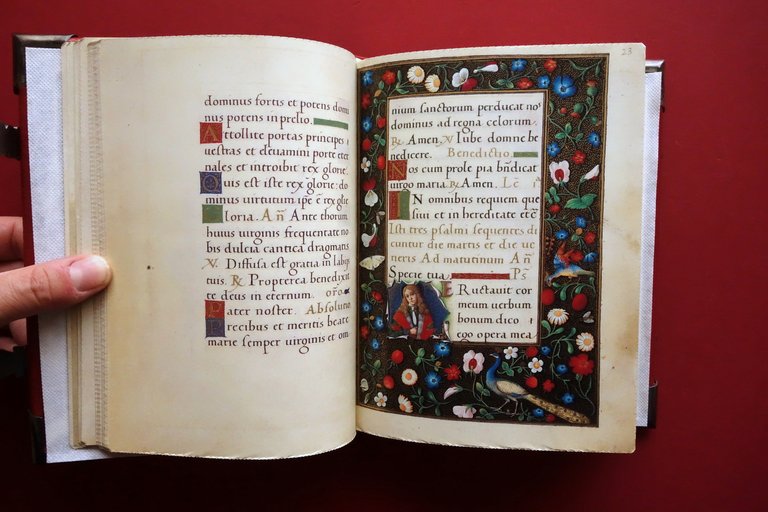 dominus fortis et potens domi
nus potens in prelio.
Attollite portas principes
uestras et eleuamini porte eter
nales et introibit rex glorie.
Quis est iste rex glorie: do
minus uirtutum ipse est rex glie
Gloria. Añ Ante thorum
huius uirginis frequentate no
bis dulcia cantica dragmatis
V. Diffusa est gratia in labijs
tuis. R. Propterea benedixit
te deus in eternum. oro.
Pater noster. Absolutio
Precibus et meritis beate
marie semper uirginis et om
23
nium sanctorum perducat nos
dominus ad regna celorum.
R. Amen. V. Iube domne be
nedicere. Benedictio.
Nos cum prole pia bñdicat
uirgo maria. R. Amen.
IN omnibus requiem que
siui et in hereditate
Isti tres psalmi sequentes di
cuntur die martis et die ue
neris Ad matutinum Añ
Specie tua. Ps
ERuctauit cor
meum uerbum
bonum dico
ego opera mea